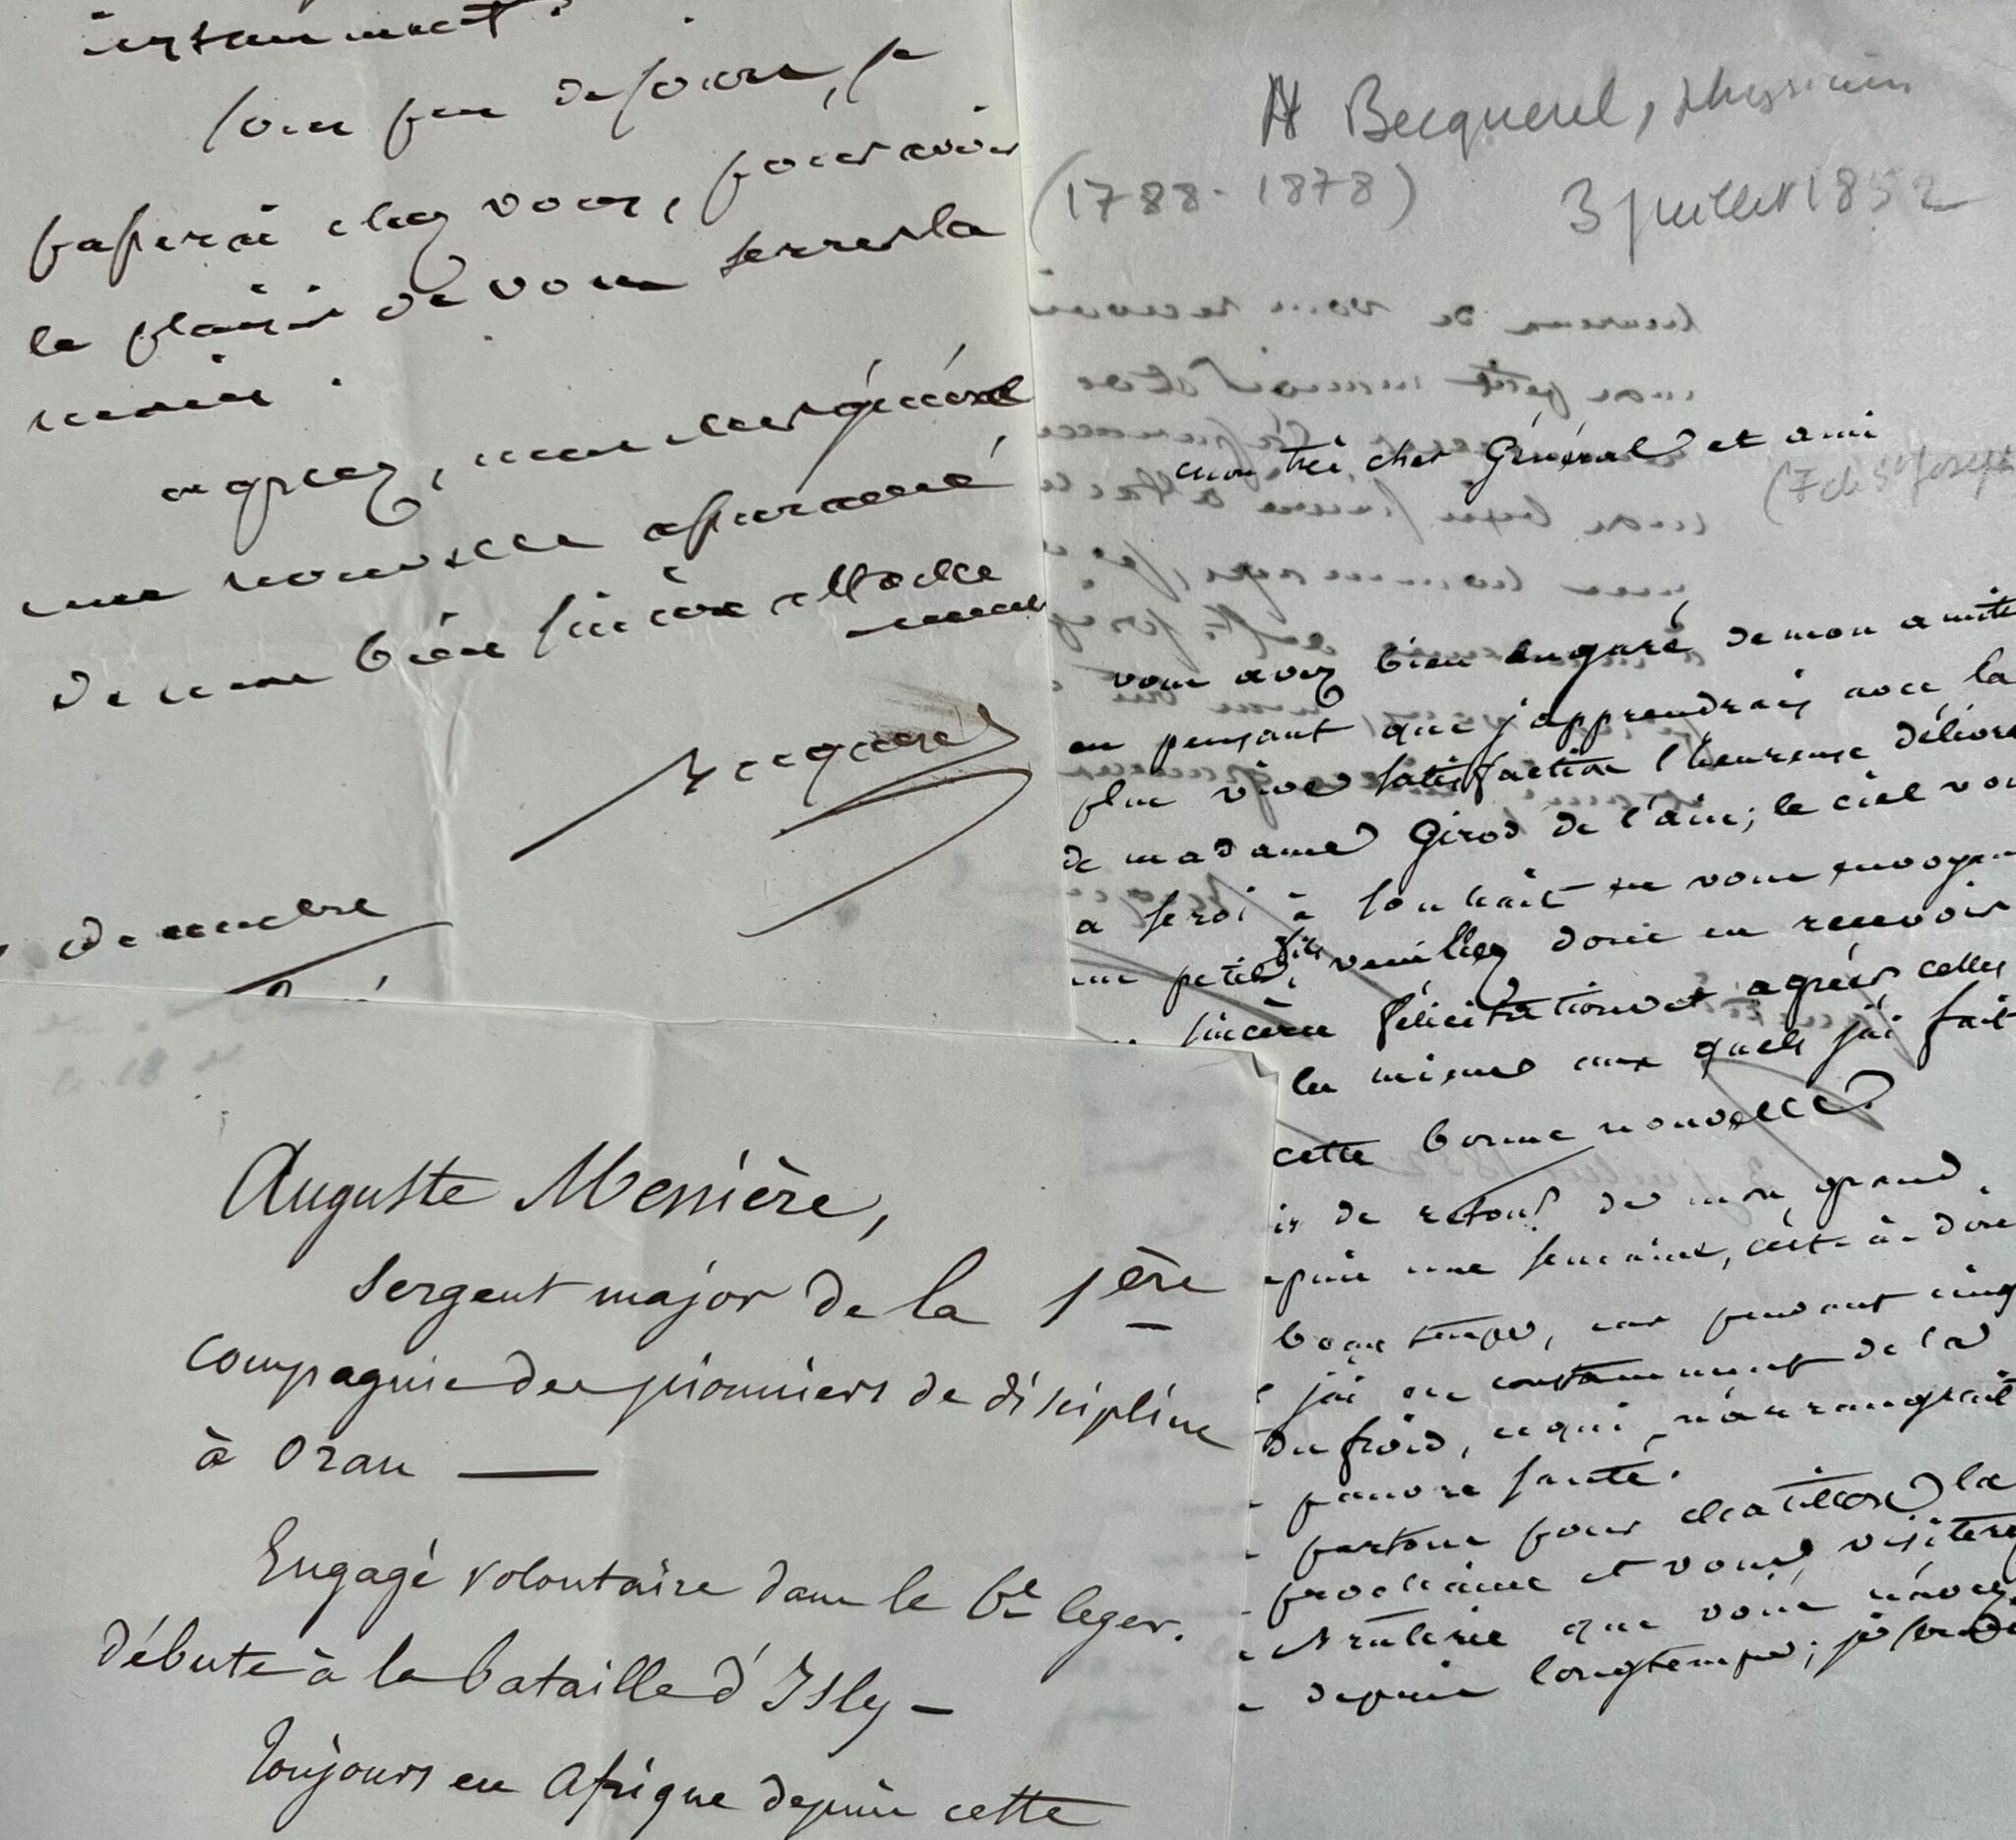 instamment.
sous peu de jours, je
passerai chez vous, pour avoir
le plaisir de vous serrer la
main.
agréez, mon cher général
une nouvelle assurance
de mon bien sincère attache
ment
Becquerel
membre
A Becquerel, physicien
(1788-1878) 3 juillet 1852
mon très cher Général et ami
(7 de St Joseph
vous avez bien auguré de mon amitié
en pensant que j'apprendrais avec la
plus vive satisfaction l'heureuse délivra
de madame Girod de l'ain; le ciel vou
a servi à souhait en vous envoyan
un petit fils, veuillez donc en recevoir
sincères félicitations et agréer celles
les miens aux quels j'ai fait
cette bonne nouvelle.
is de retour de mon grand
epuis une semaine, c'est-à-dire
temps, car pendant cinq
j'ai eu constamment de la
du froid, ce qui n'arrangeait
pauvre santé.
partons pour chatillon la
prochaine et vous visiter
que vous n'avez
depuis longtemps; je serai
Auguste Messière,
Sergent major de la 1ère
compagnie des pionniers de discipline
à Oran —
Engagé volontaire dans le 6e leger.
débute à la bataille d'Isly —
Toujours en Afrique depuis cette